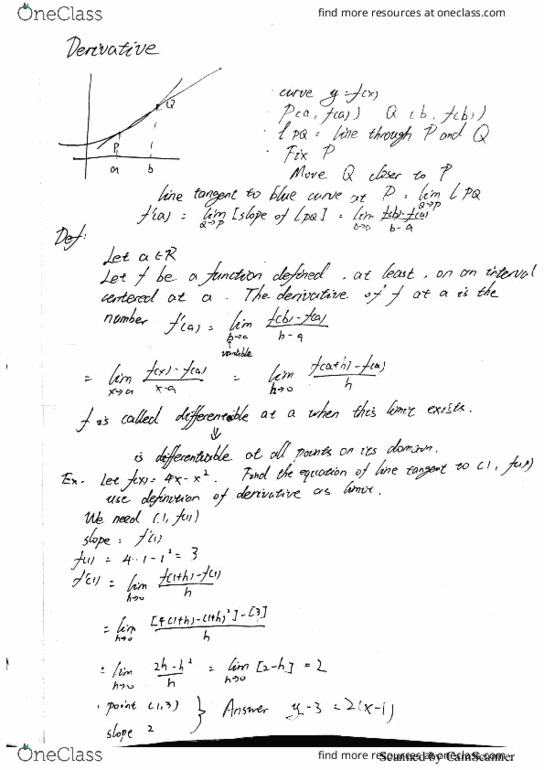 OneClass
find more resources at oneclass.com
Derivative
Q
P
a b
curve y = f(x)
P(a, f(a)) Q (b, f(b))
l PQ = line through P and Q
Fix P
Move Q closer to P
line tangent to blue curve at P = lim Q→P l PQ
f'(a) = lim Q→P [slope of l PQ] = lim b→a f(b)-f(a) / b-a
Def:
Let a ∈ R
Let f be a function defined, at least, on an interval
centered at a. The derivative of f at a is the
number f'(a) = lim b→a f(b)-f(a) / b-a
variable
= lim x→a f(x)-f(a) / x-a = lim h→0 f(a+h)-f(a) / h
f is called differentiable at a when this limit exists.
⇓
is differentiable at all points on its domain.
Ex. Let f(x) = 4x - x². Find the equation of line tangent to (1, f(1))
use definition of derivative as limit.
We need (1, f(1))
slope: f'(1)
f(1) = 4·1-1² = 3
f'(1) = lim h→0 f(1+h)-f(1) / h
= lim h→0 [4(1+h)-(1+h)²]-[3] / h
= lim h→0 2h-h² / h = lim h→0 [2-h] = 2
point (1,3) } Answer y-3 = 2(x-1)
slope 2
OneClass
find more resources at oneclass.com
Scanned by CamScanner